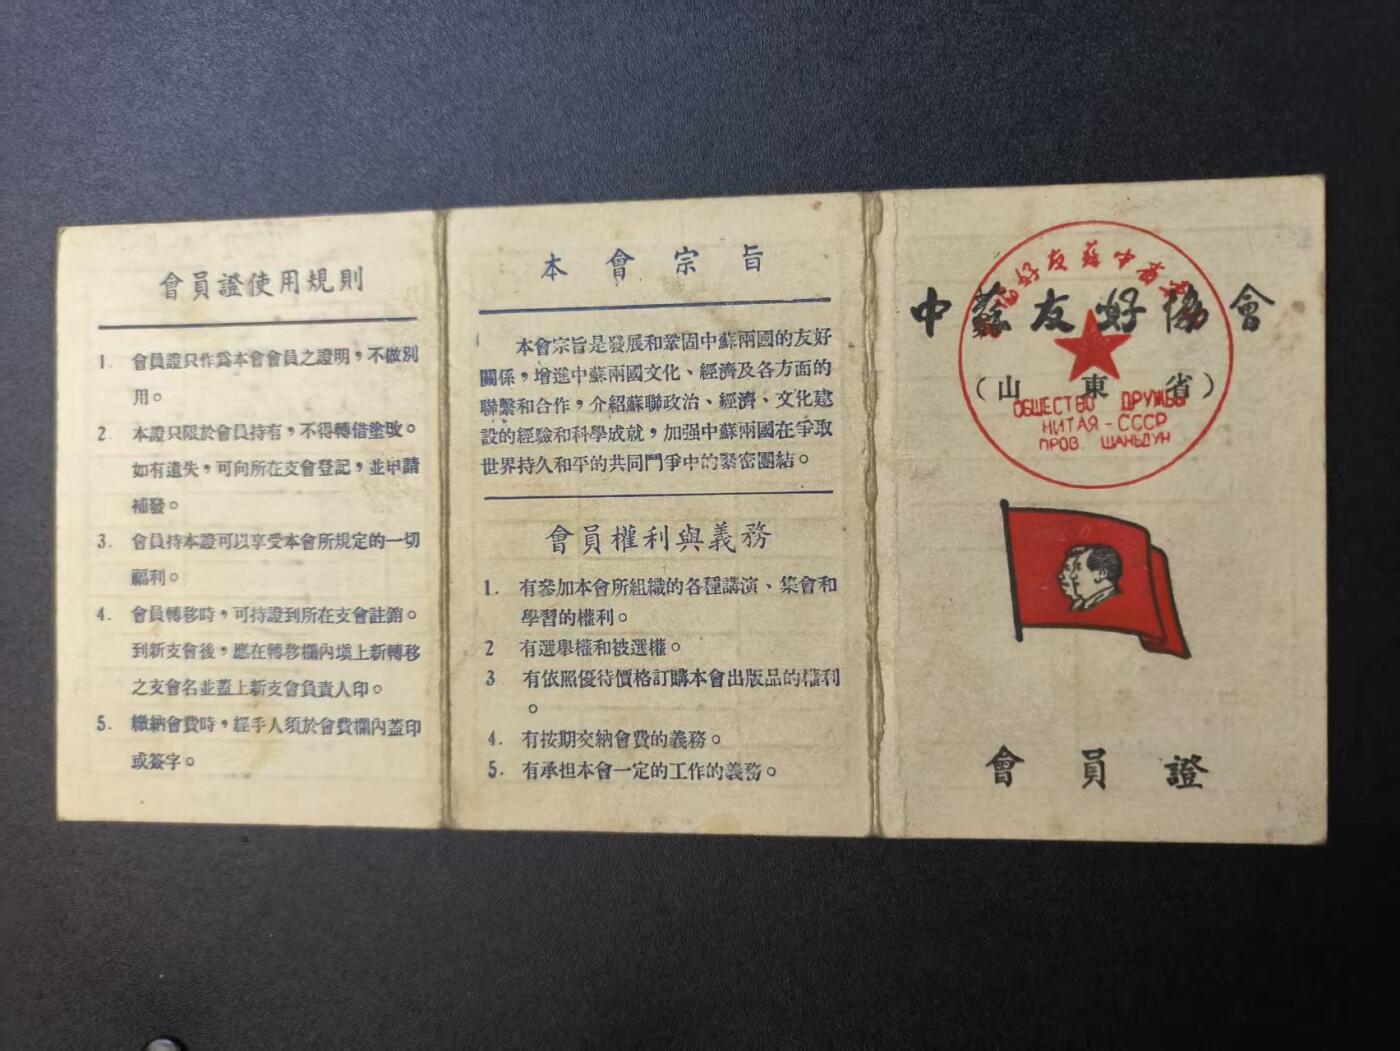 會員證使用規則
1. 會員證只作爲本會會員之證明，不做別
用。
2. 本證只限於會員持有，不得轉借塗改。
如有遺失，可向所在支會登記，並申請
補發。
3. 會員持本證可以享受本會所規定的一切
福利。
4. 會員轉移時，可持證到所在支會註銷。
到新支會後，應在轉移欄內塡上新轉移
之支會名並蓋上新支會負責人印。
5. 繳納會費時，經手人須於會費欄內蓋印
或簽字。
本會宗旨
本會宗旨是發展和鞏固中蘇兩國的友好
關係，增進中蘇兩國文化、經濟及各方面的
聯繫和合作，介紹蘇聯政治、經濟、文化建
設的經驗和科學成就，加强中蘇兩國在爭取
世界持久和平的共同鬥爭中的緊密團結。
會員權利與義務
1. 有參加本會所組織的各種講演、集會和
學習的權利。
2 有選舉權和被選權。
3 有依照優待價格訂購本會出版品的權利
。
4. 有按期交納會費的義務。
5. 有承担本會一定的工作的義務。
中蘇友好協會
（山東省）
好友蘇中
ОБЩЕСТВО ДРУЖБЫ
КИТАЯ-СССР
ПРОВ. ШАНЬДУН
會員證